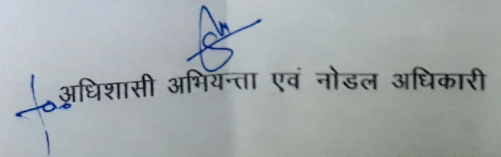 अधिशासी अभियन्ता एवं नोडल अधिकारी